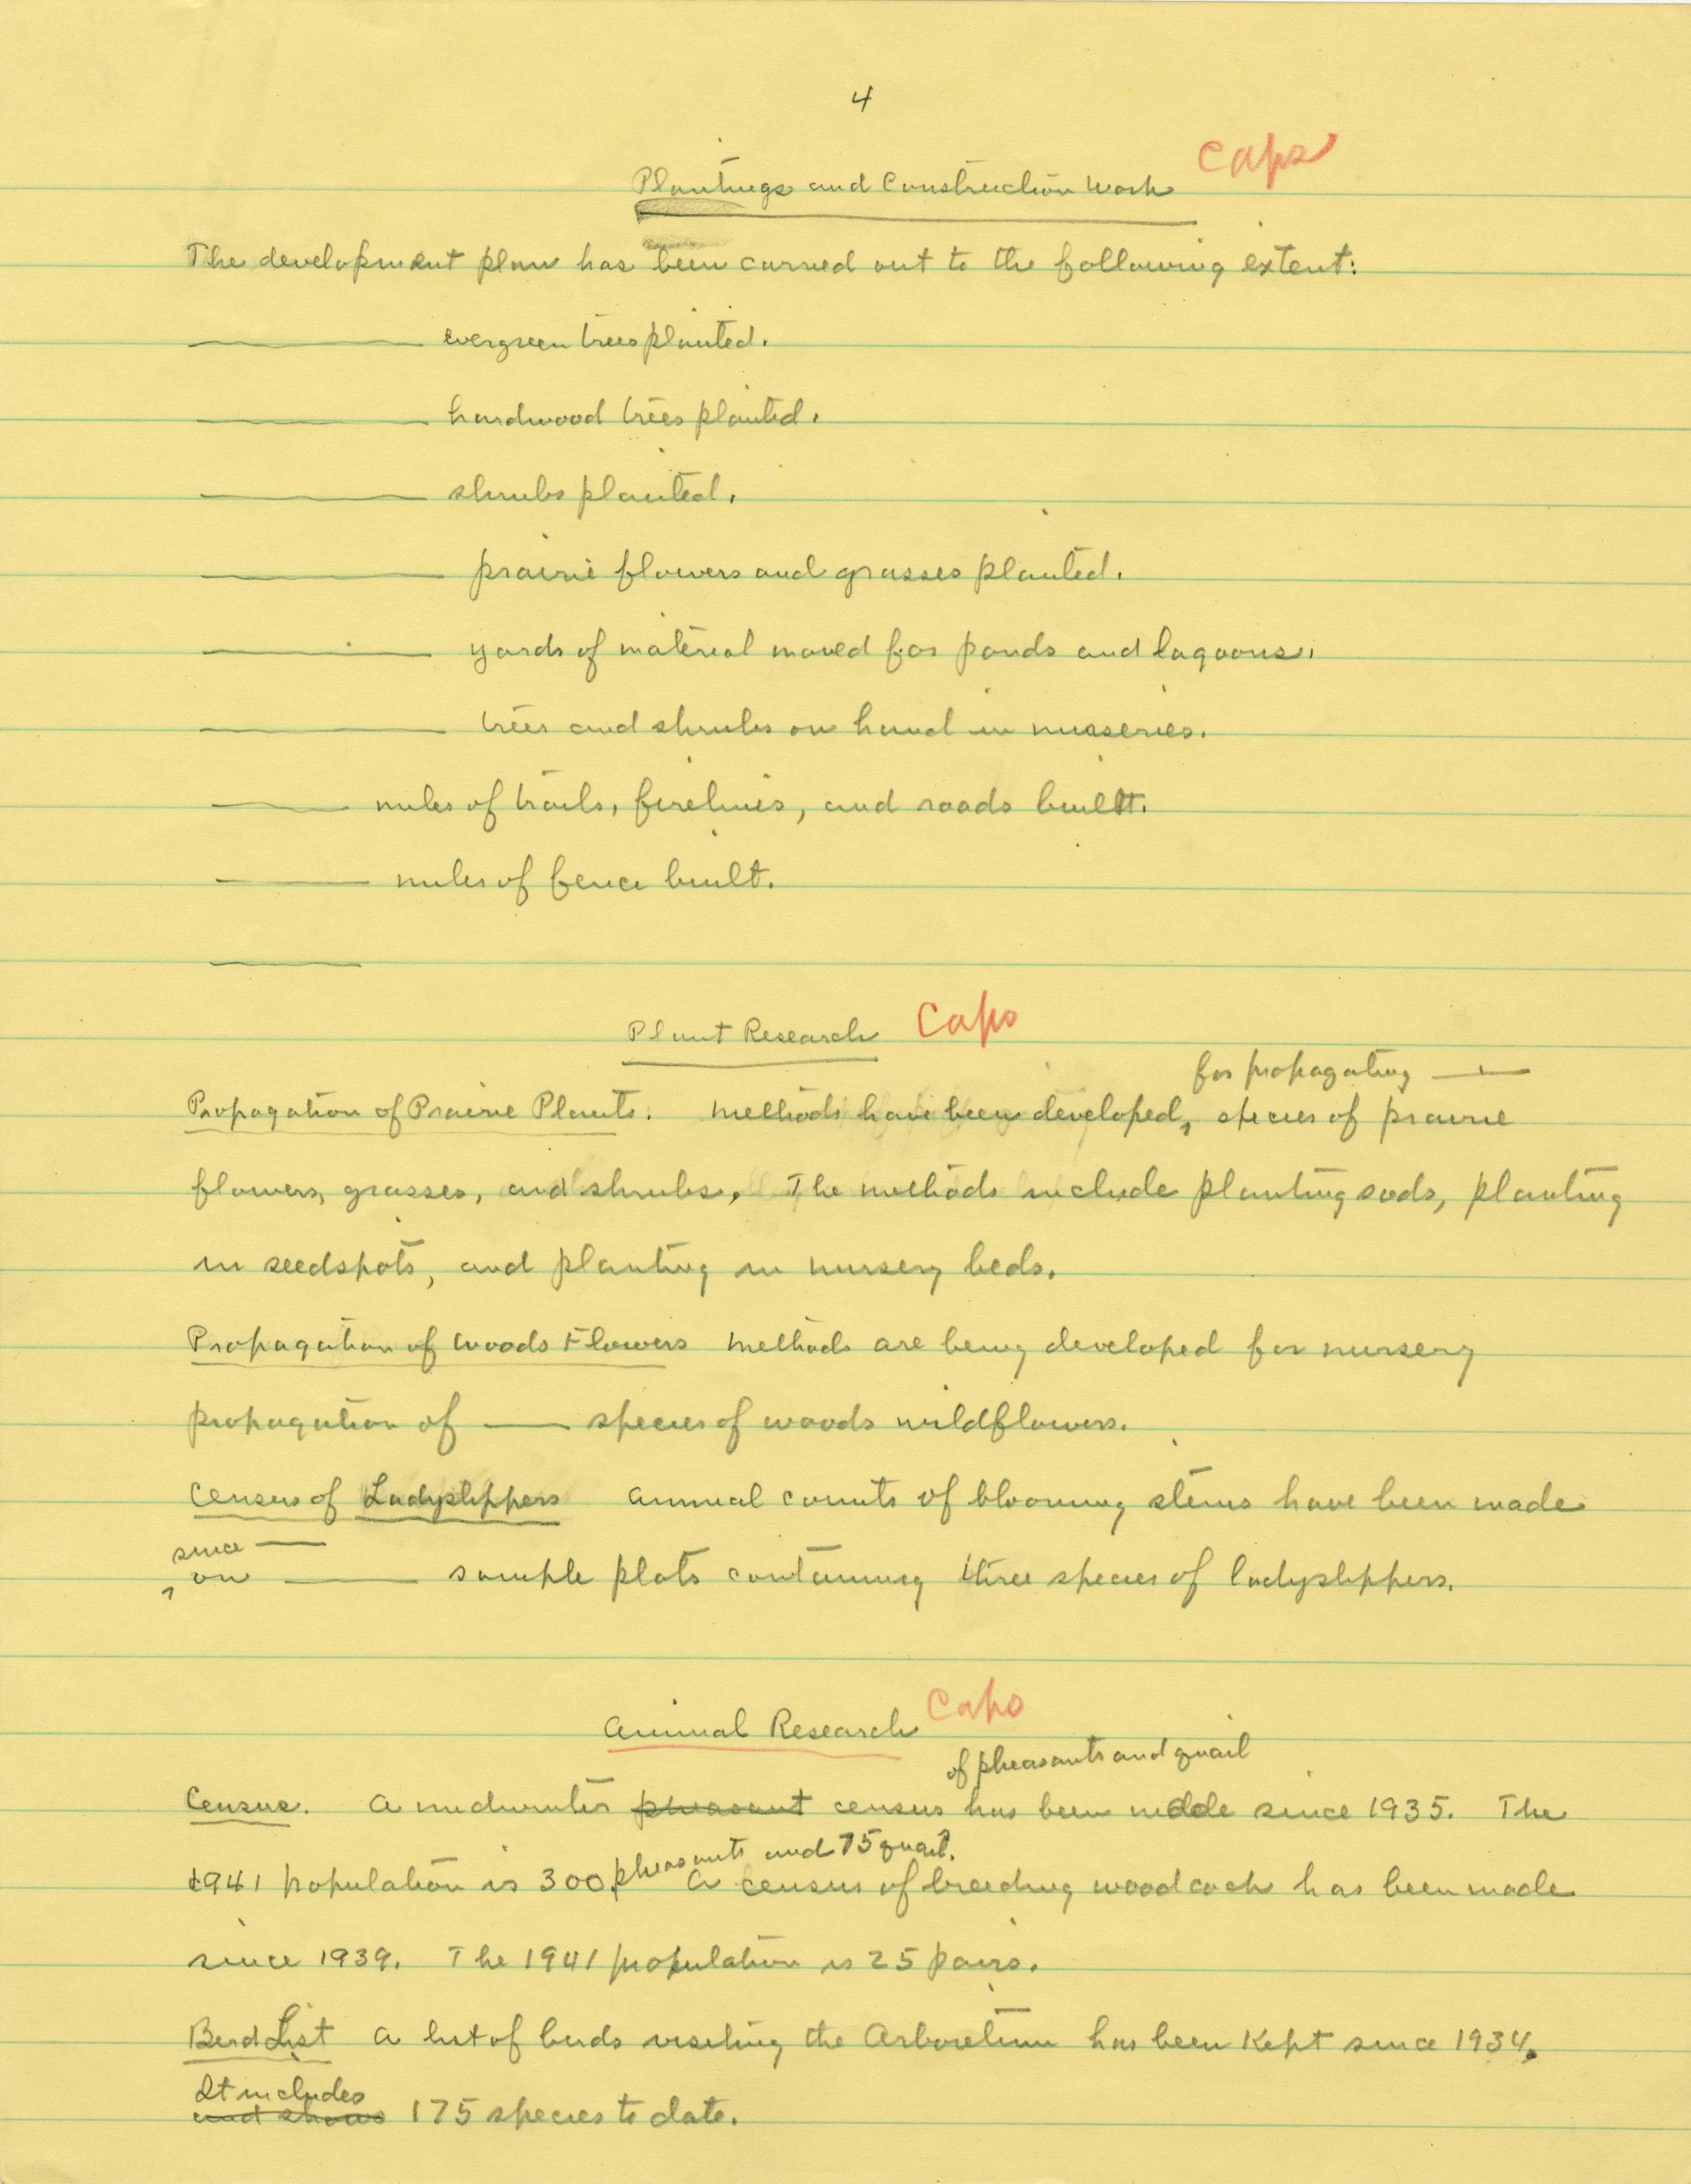 4
Caps
Plantings and Construction Work
The development plan has been carried out to the following extent:
——— evergreen trees planted.
——— hardwood trees planted.
——— shrubs planted.
——— prairie flowers and grasses planted.
——— yards of material moved for ponds and lagoons.
——— trees and shrubs on hand in nurseries.
——— miles of trails, firelines, and roads built.
——— miles of fence built.
———
Plant Research Caps
for propagating ———
Propagation of Prairie Plants. Methods have been developed, species of prairie
flowers, grasses, and shrubs. The methods include planting sods, planting
in seedspots, and planting in nursery beds.
Propagation of Woods Flowers Methods are being developed for nursery
propagation of ——— species of woods wildflowers.
Census of Ladyslippers Annual counts of blooming stems have been made
since ———
on ——— sample plots containing three species of ladyslippers.
Caps
Animal Research
of pheasants and quail
Census. A midwinter pheasant census has been made since 1935. The
pheasants and 75 quail.
1941 population is 300. A census of breeding woodcock has been made
since 1939. The 1941 population is 25 pairs.
Bird List A list of birds visiting the Arboretum has been kept since 1934.
It includes
and shows 175 species to date.